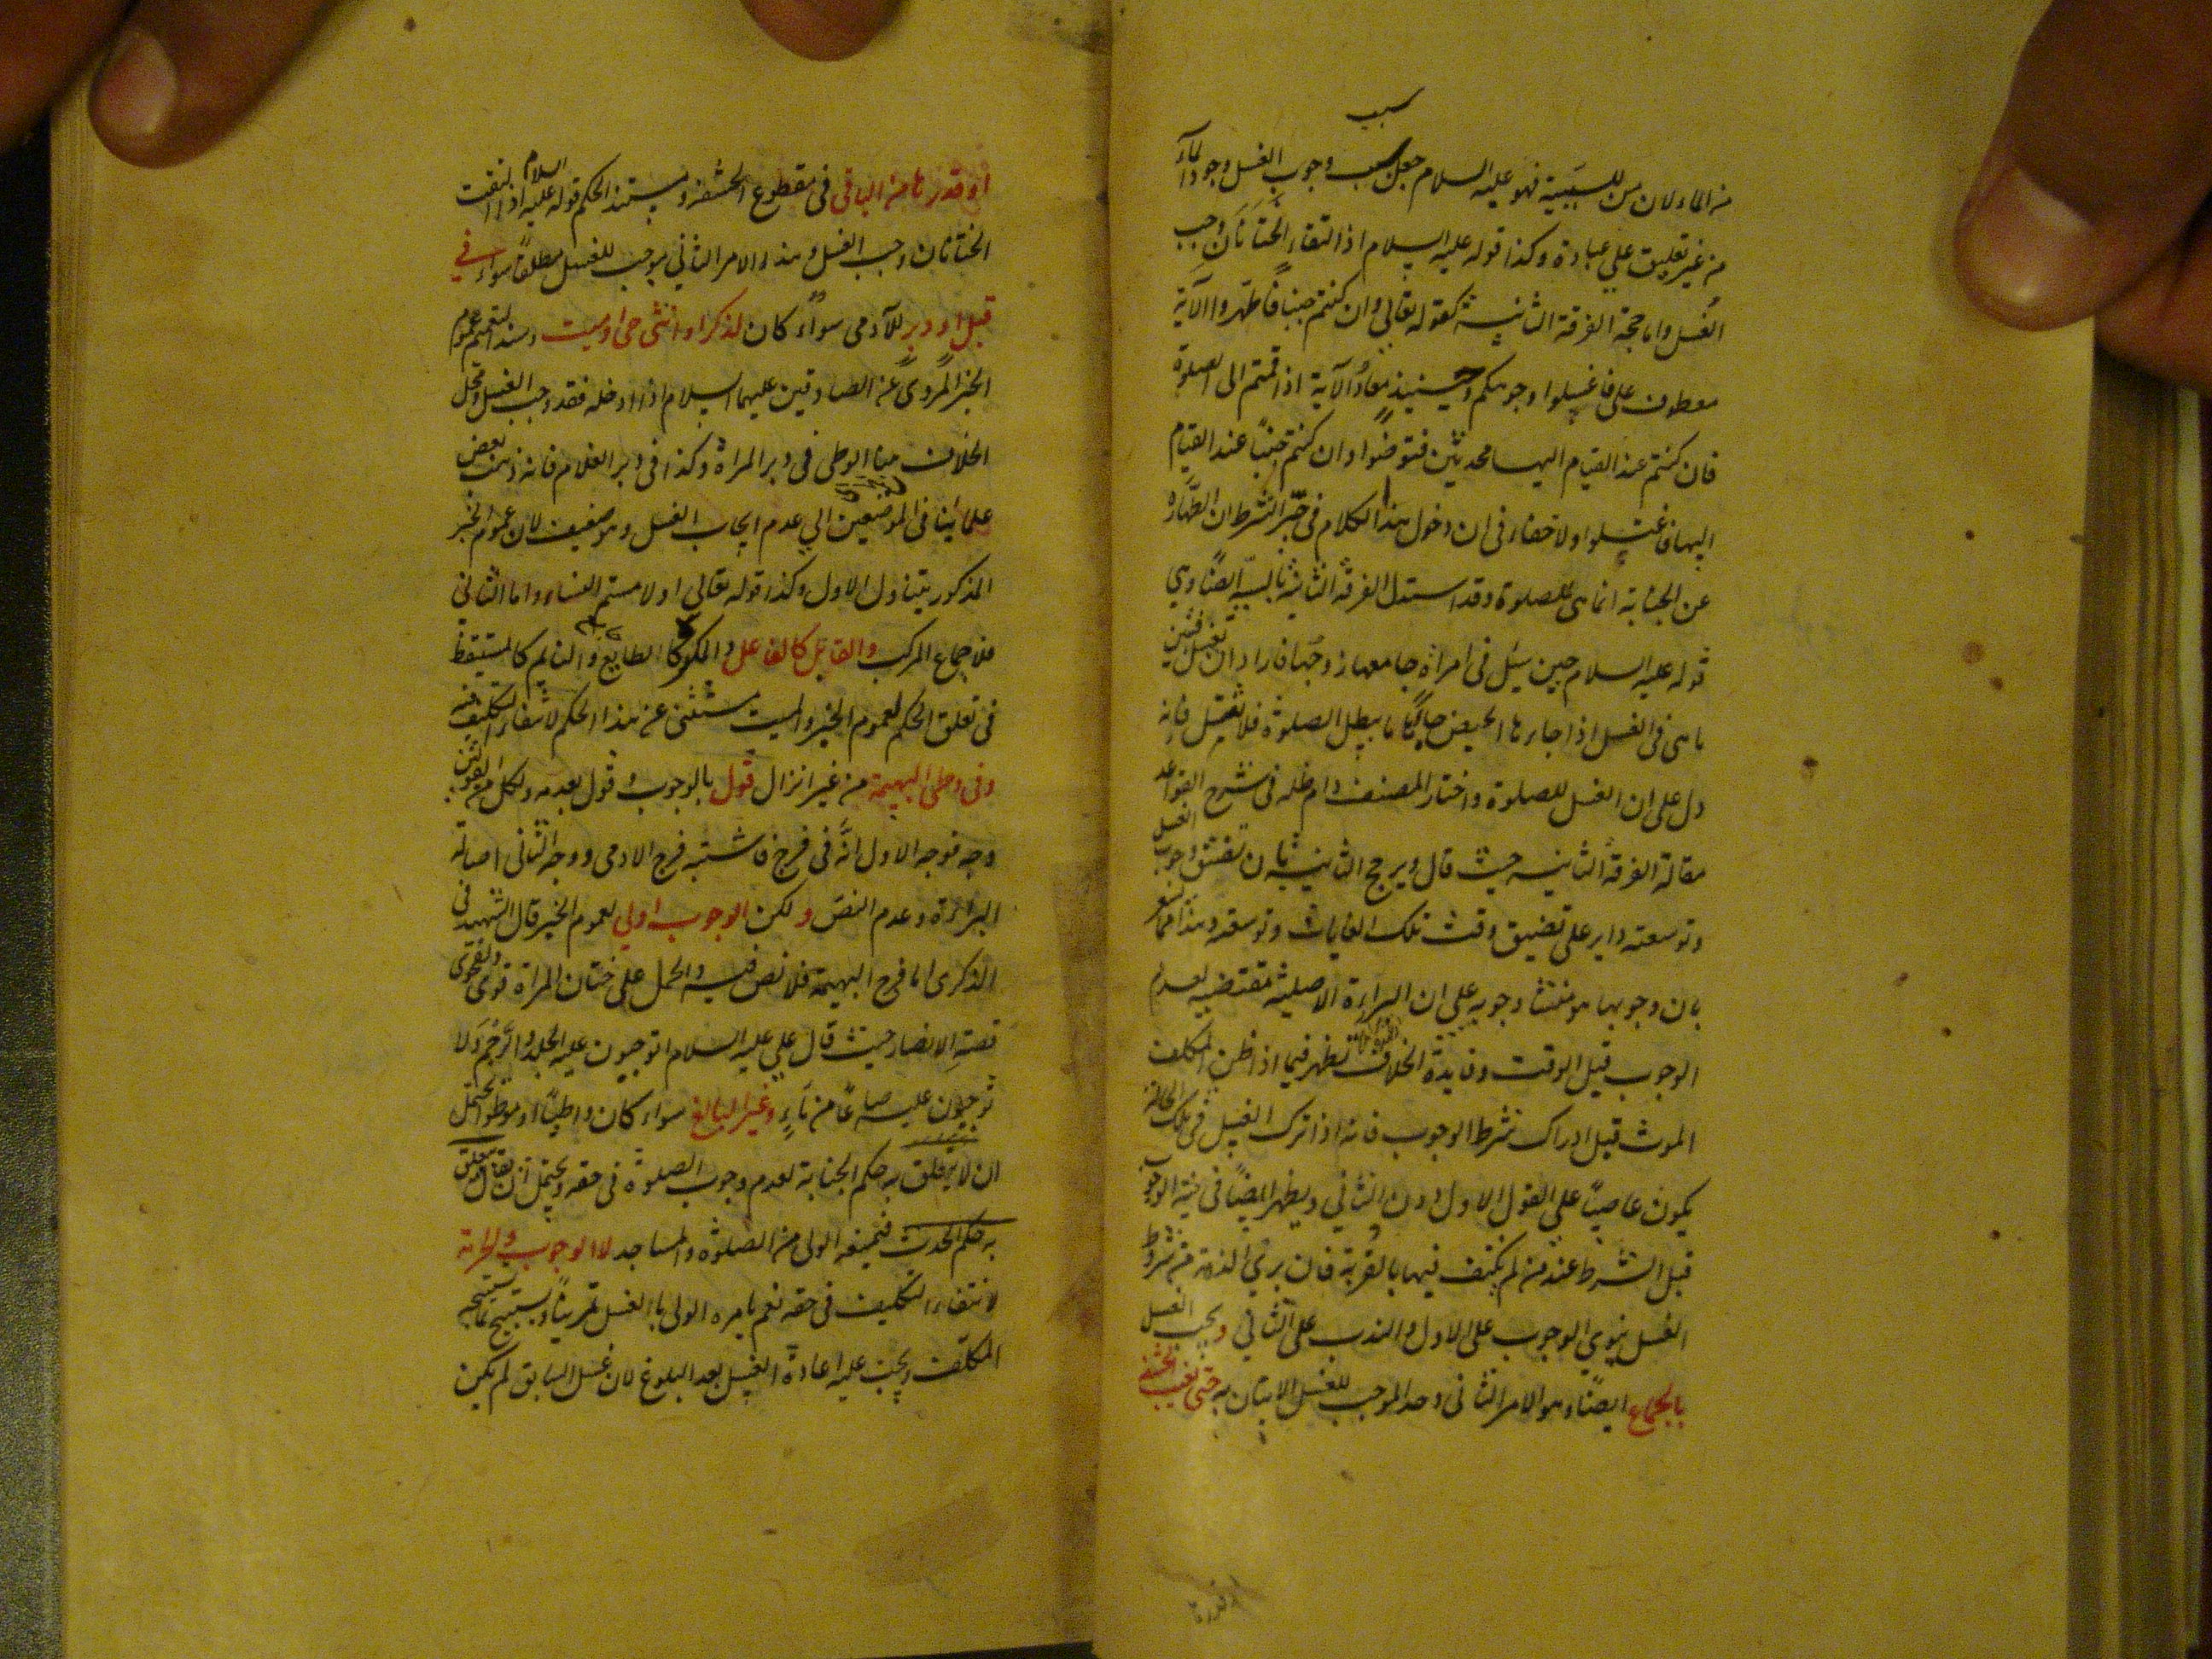 سبب
من الماء لان من للسببية فهو عليه السلام جعل سبب وجوب الغسل وجود الماء
من غير تعليق على عبادة وكذا قوله عليه السلام اذا التقاء الختانان وجب
الغسل واما حجة الفرقة الثانية كقوله تعالى وان كنتم جنبا فاطهروا الآية
معطوف على فاغسلوا وجوهكم وحينئذ مفاد الآية اذا قمتم الى الصلوة
فان كنتم عند القيام اليها محدثين فتوضوا وان كنتم جنبا عند القيام
اليها فاغتسلوا ولا خفاء فى ان دخول هذا الكلام فى حيز الشرط ان الطهارة
عن الجنابة انما هى للصلوة وقد استدل الفرقة الثانية بالسنة ايضا وهي
قوله عليه السلام حين سئل فى امراة جامعها زوجها فاراد ان تغتسل فتبين
ما هى فى الغسل اذا جاءها الحيض جاءها ما يبطل الصلوة فلا تغتسل فانه
دل على ان الغسل للصلوة واختار المصنف دام ظله فى شرح القواعد
مقالة الفرقة الثانية حيث قال ويرجح الثانية بان تضيق وجوب الغسل
وتوسعته داير على تضيق وقت تلك الغايات وتوسعته وهذا مما يشعر
بان وجوبها هو منشأ وجوبه على ان البراءة الاصلية مقتضية لعدم
الوجوب قبل الوقت وفايدة الخلاف تظهر فيما اذا ظن المكلف
الموت قبل ادراك شرط الوجوب فانه اذا ترك الغسل فى تلك الحالة
يكون عاصيا على القول الاول دون الثاني ويظهر ايضا فى نية الوجوب
قبل الشرط عند من لم يكتف فيها بالقربة فان برئ الذمة من شروط
الغسل ينوي الوجوب على الاول والندب على الثاني ويجب الغسل
بالجماع ايضا وهو الامر الثاني وحد الموجب للغسل الاتيان به حتى تغيب الحشفة
او قدرها
او قدرها من الباقى فى مقطوع الحشفة ومستند الحكم قوله عليه السلام اذا التقت
الختانان وجب الغسل وهذا الامر الثاني موجب للغسل مطلقا سواء فى
قبل او دبر للآدمى سواء كان لذكر او انثى حى او ميت وسند التعميم عموم
الخبر المروى عن الصادقين عليهما السلام اذا ادخله فقد وجب الغسل ومحل
الخلاف هنا الوطى فى دبر المراة وكذا فى دبر الغلام فانه ذهب بعض
علمائنا فى الموضعين الي عدم ايجاب الغسل وهو ضعيف لان عموم الخبر
المذكور يتناول الاول وكذا قوله تعالى او لامستم النساء واما الثاني
فلاجماع المركب والقابل كالفاعل والمكره كالطايع والنايم كالمستيقظ
فى تعلق الحكم لعموم الخبر والميت مستثنى عن هذا الحكم لانتفاء التكليف عنه
وفى وطى البهيمة من غير انزال قول بالوجوب وقول بعدمه ولكل من القولين
وجه فوجه الاول انه فى فرج فاشتبه فرج الادمى ووجه الثانى اصالة
البراءة وعدم النص ولكن الوجوب اولى لعموم الخبر قال الشهيد فى
الذكرى اما فرج البهيمة فلا نص فيه والحمل على ختان المراة قوى ولفحوى
قصة الانصار حيث قال علي عليه السلام اتوجبون عليه الجلد والرجم ولا
توجبون عليه صاعا من ماء وغير البالغ سواء كان واطيا او موطوا يحتمل
ان لا يتعلق به حكم الجنابة لعدم وجوب الصلوة فى حقه ويحتمل ان يقال يتعلق
به حكم الحدث فيمنعه الولى من الصلوة والمساجد لا الوجوب والحرمة
لانتفاء التكليف فى حقه نعم يامره الولى بالغسل تمرينا ويستبيح ما يستبيحه
المكلف ويجب عليه اعادة الغسل بعد البلوغ لان غسل السابق لم يكن